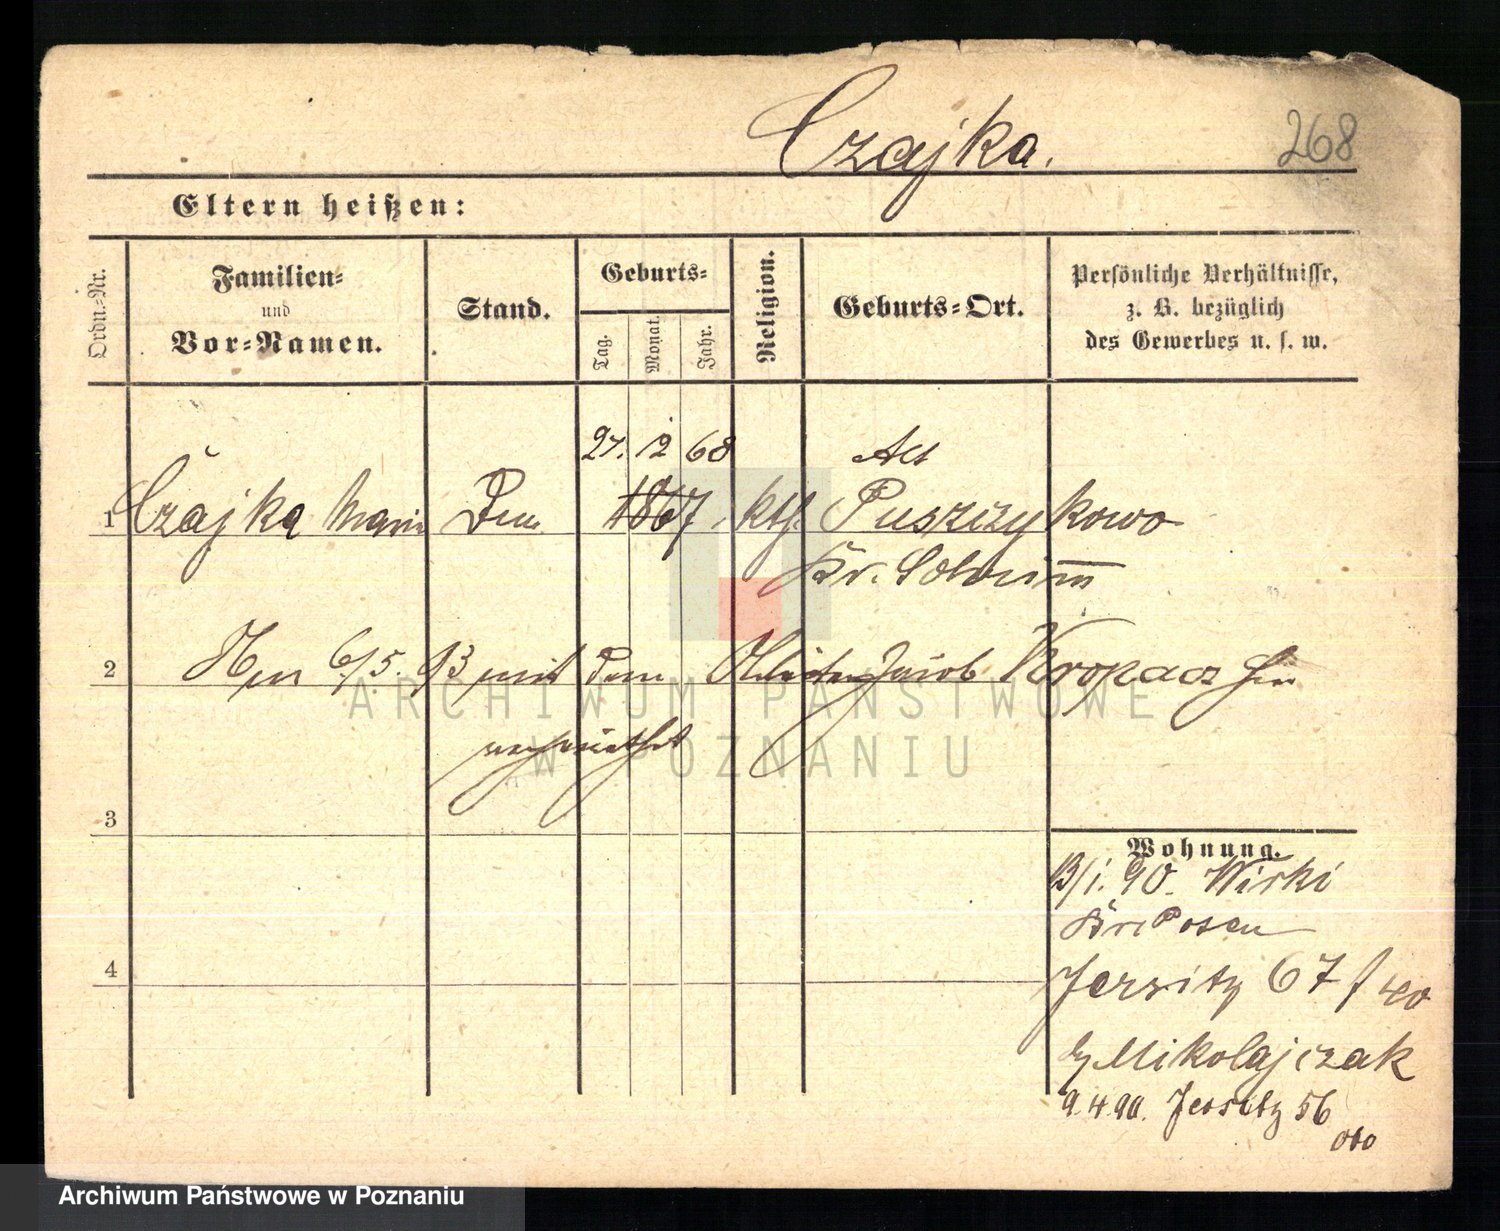 Czajka. 268
Eltern heißen:
Ordn.-Nr.
Familien-
und
Vor-Namen.
Stand.
Geburts-
Tag. Monat. Jahr.
Religion.
Geburts-Ort.
Persönliche Verhältnisse,
z. B. bezüglich
des Gewerbes u. s. w.
27. 12 68 Alt
1 Czajka Maria 1867 kth. Puszczykowo
Kr. Schrimm
2 6/5. 93 mit dem Jacob Kropacz hier
verheirathet
3
Wohnung.
13/1. 90. Wirki
Kr. Posen
4
Jersitz 67 f 40
Mikolajczak
9.4.90. Jersitz 56
ARCHIWUM PAŃSTWOWE
W POZNANIU
Archiwum Państwowe w Poznaniu